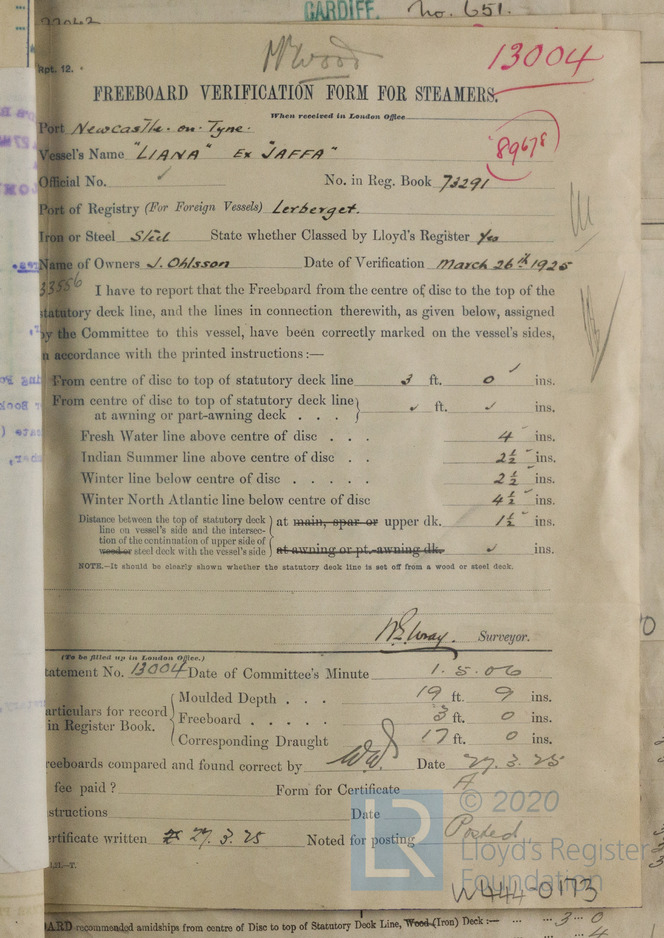 CARDIFF. No. 651.
Rpt. 12. 13004
FREEBOARD VERIFICATION FORM FOR STEAMERS.
When received in London Office
Port Newcastle-on-Tyne.
89678
Vessel's Name "LIANA" Ex "JAFFA"
Official No. ✓ No. in Reg. Book 73291
Port of Registry (For Foreign Vessels) Lerberget.
Iron or Steel Steel State whether Classed by Lloyd's Register Yes
Name of Owners J. Ohlsson Date of Verification March 26th 1925
33556
I have to report that the Freeboard from the centre of disc to the top of the
statutory deck line, and the lines in connection therewith, as given below, assigned
by the Committee to this vessel, have been correctly marked on the vessel's sides,
n accordance with the printed instructions :—
From centre of disc to top of statutory deck line 3 ft. 0 ins.
From centre of disc to top of statutory deck line
at awning or part-awning deck . . . ✓ ft. ✓ ins.
Fresh Water line above centre of disc . . . 4 ins.
Indian Summer line above centre of disc . . 2½ ins.
Winter line below centre of disc . . . . . 2½ ins.
Winter North Atlantic line below centre of disc 4½ ins.
Distance between the top of statutory deck
line on vessel's side and the intersec-
tion of the continuation of upper side of
wood or steel deck with the vessel's side
at main, spar or upper dk. 1½ ins.
at awning or pt.-awning dk. ✓ ins.
NOTE.—It should be clearly shown whether the statutory deck line is set off from a wood or steel deck.
Surveyor.
(To be filled up in London Office.)
tatement No. 13004 Date of Committee's Minute 1.5.06
articulars for record
in Register Book.
Moulded Depth . . . 19 ft. 9 ins.
Freeboard . . . . . 3 ft. 0 ins.
Corresponding Draught 17 ft. 0 ins.
reeboards compared and found correct by Date 27.3.25
fee paid ? Form for Certificate A
structions Date
ertificate written 27.3.25 Noted for posting Posted
LR © 2020
Lloyd's Register
Foundation
W444-0173
ARD recommended amidships from centre of Disc to top of Statutory Deck Line, Wood (Iron) Deck :— 3 - 0